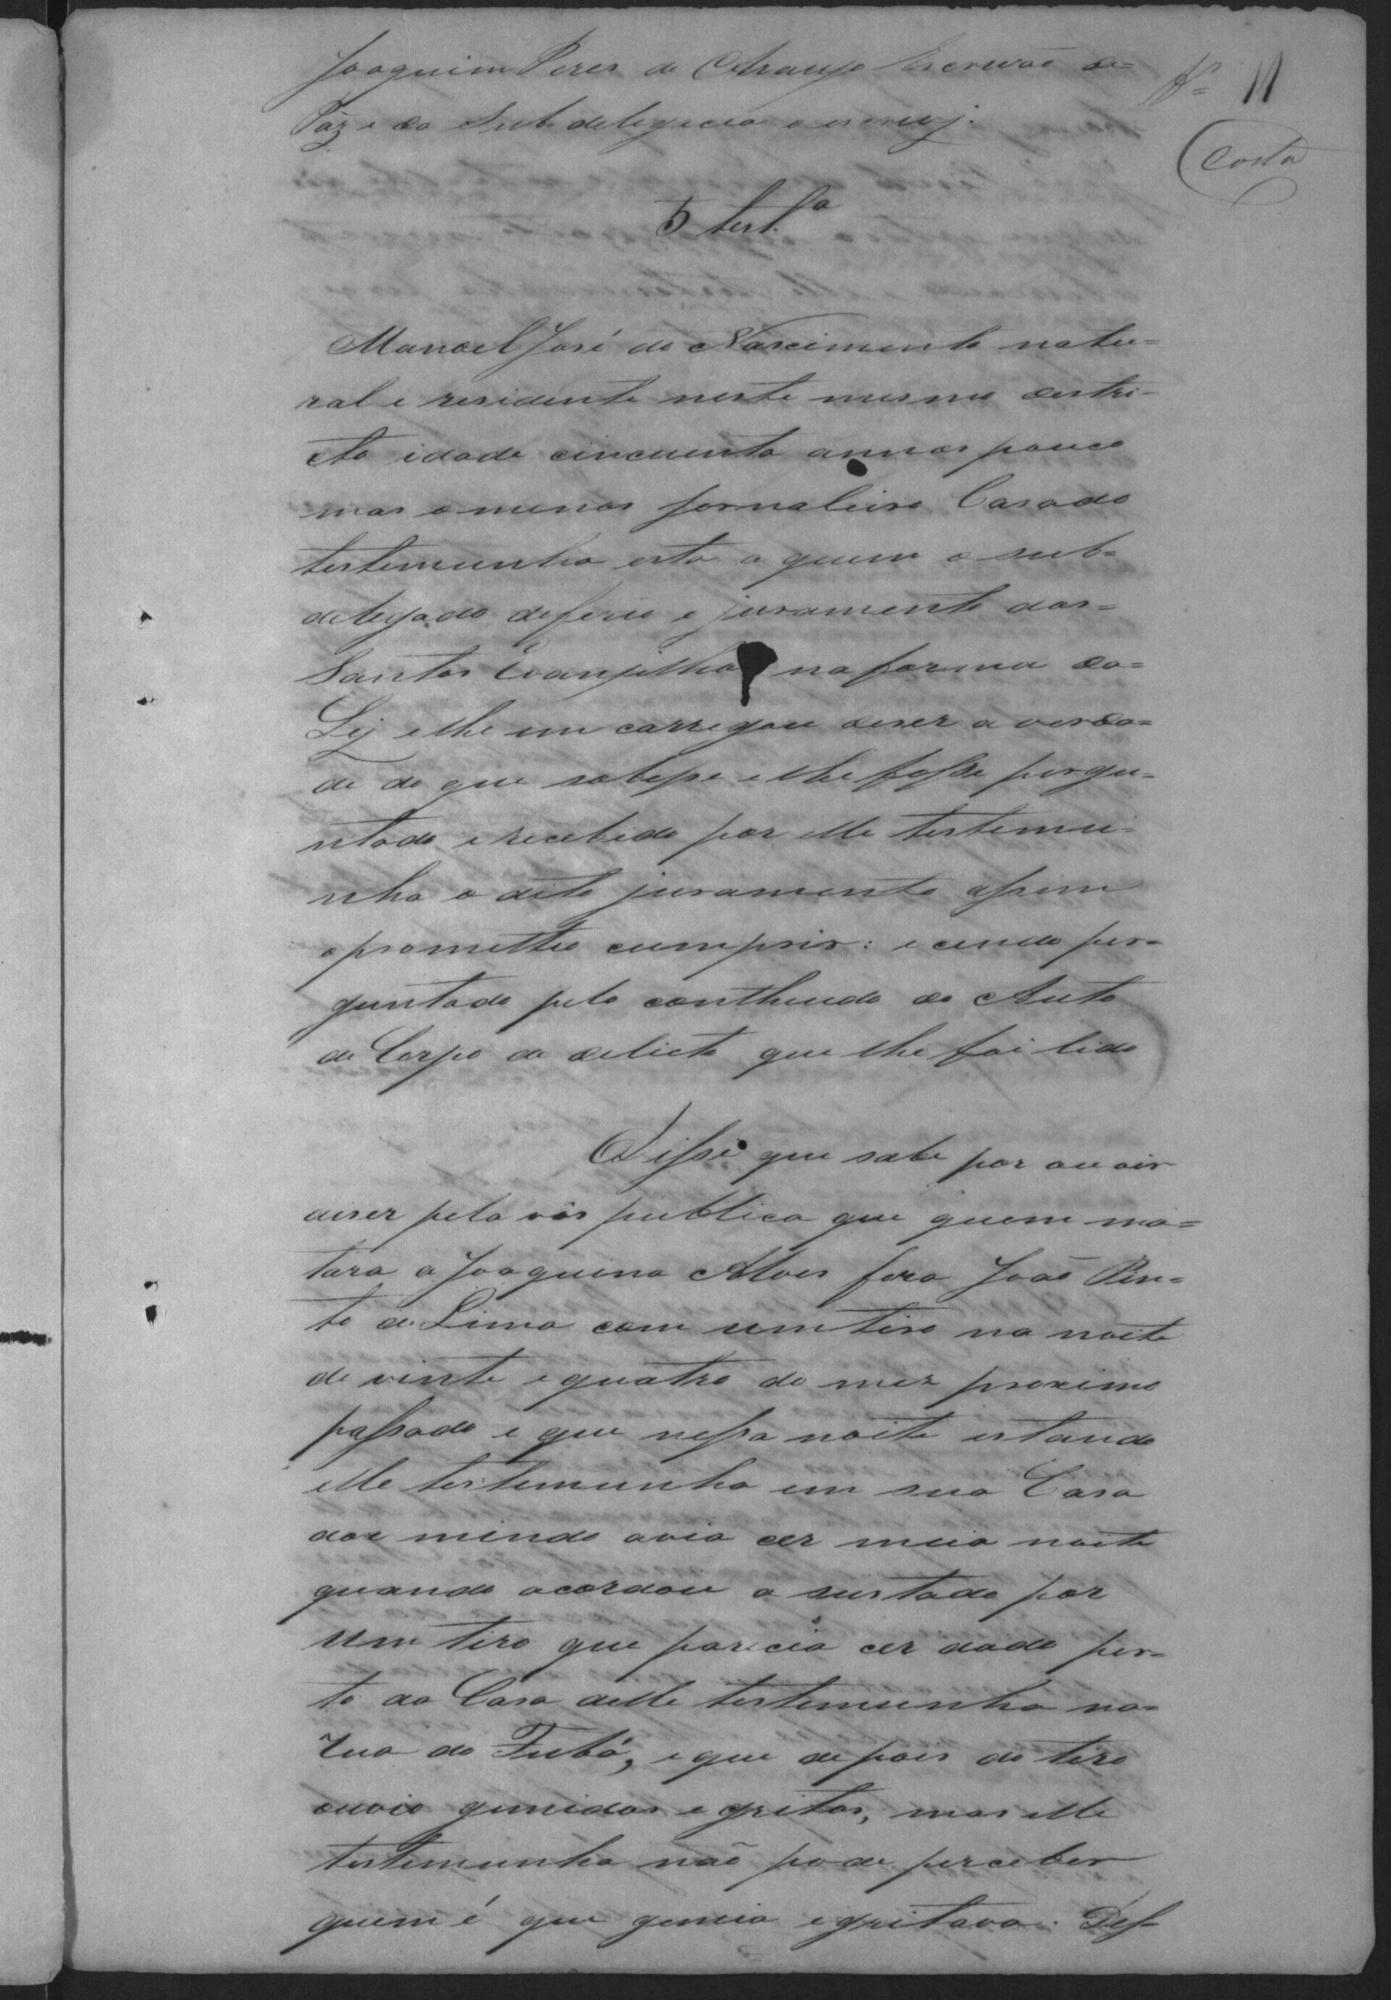 Joaquim Peres de Araujo Escrivaõ de=
Paz e da Subdelegacia o escrevj.
Fs= 11
Costa
5 test.ª
Manoel José do Nascimento natu=
ral e residente neste mesmo destri-
cto idade cincuenta annos pouco
mas o menos jornaleiro Casado
testemunha esta a quem o sub=
delegado deferio o juramento dos=
Santos Evangelhos na forma da=
Lej e lhe em carregou diser a verda=
de do que sobesse e lhe fosse pergu=
ntado e recebido por elle testemu-
nha o dito juramento assim
o prometteo cumprir: e cendo per=
guntado pelo conthiudo do Auto
de Corpo de delicto que lhe foi lido
Disse que sabe por ou vir
diser pela vós publica que quem ma=
tara a Joaquina Alves fora Joaõ Pin=
to de Lima com um tiro na noite
de vinte e quatro do mez proximo
passado e que nessa noite estando
elle testemunha em sua Casa
dor mindo avia cer meia noite
quando acordou a sustado por
um tiro que parecia cer dado per=
to da Casa delle testemunha na=
rua do Fubá, e que depois do tiro
ouvio gemidos e gritos, mas elle
testemunha naõ pode perceber
quem é que gemia e gritava. Des-